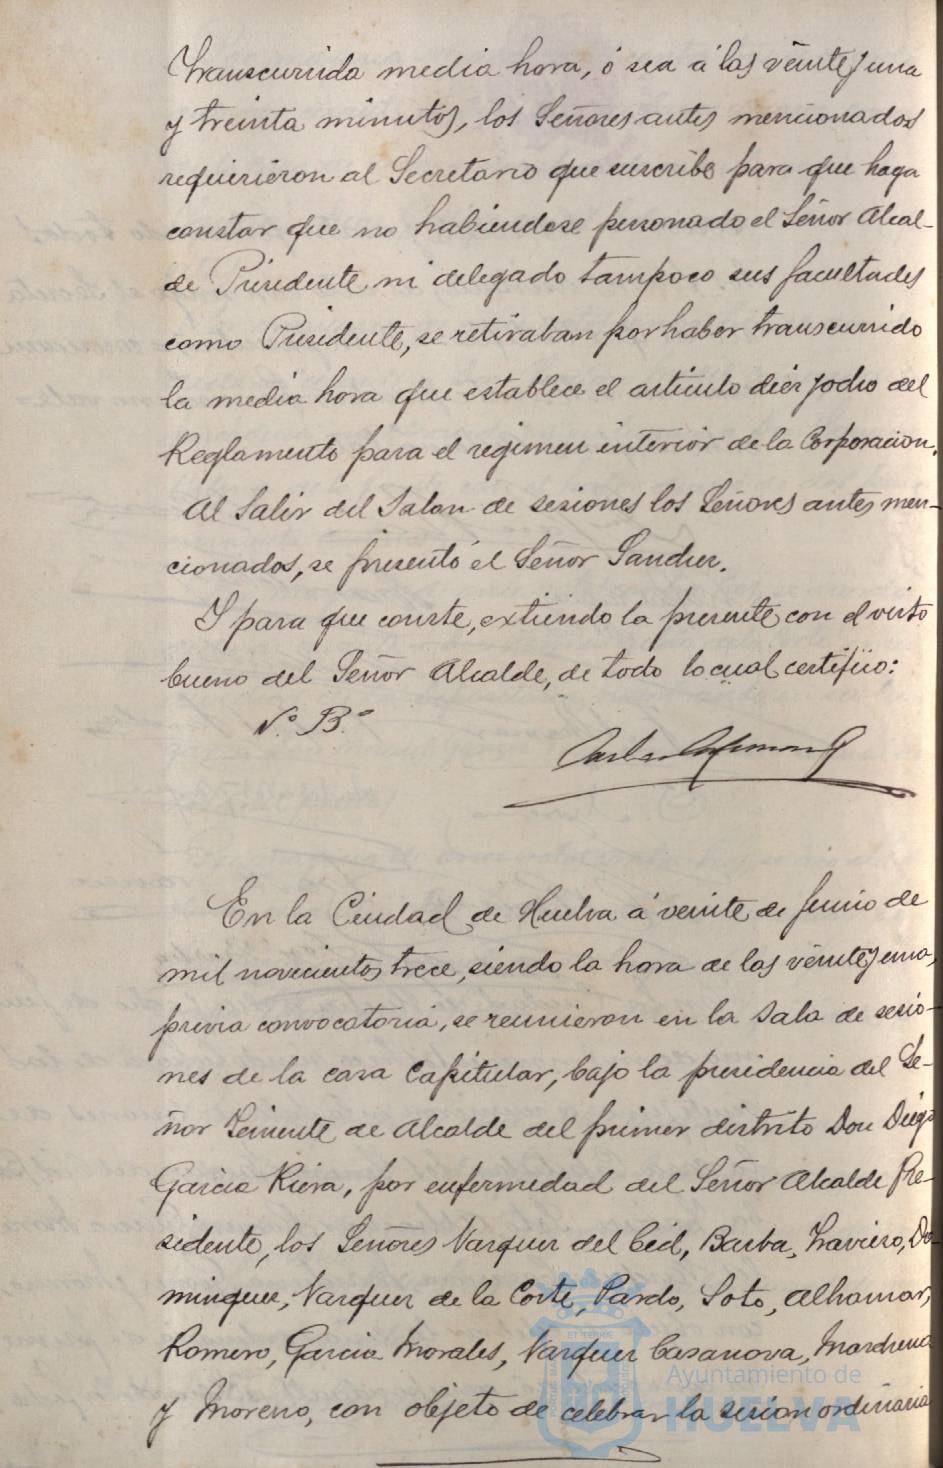 Transcurrida media hora, ó sea á las veinte y una
y treinta minutos, los Señores antes mencionados
requirieron al Secretario que suscribe para que haga
constar que no habiendose personado el Señor Alcal-
de Presidente ni delegado tampoco sus facultades
como Presidente, se retiraban por haber transcurrido
la media hora que establece el articulo diez y ocho del
Reglamento para el regimen interior de la Corporacion.
Al salir del Salon de sesiones los Señores antes men-
cionados, se presentó el Señor Sanchez.
Y para que conste, extiendo la presente con el visto
bueno del Señor Alcalde, de todo lo cual certifico:
Vº Bº
En la Ciudad de Huelva á veinte de Junio de
mil novecientos trece, siendo la hora de las veinte y una,
previa convocatoria, se reunieron en la Sala de sesio-
nes de la casa Capitular, bajo la presidencia del Se-
ñor Teniente de Alcalde del primer distrito Don Diego
Garcia Riera, por enfermedad del Señor Alcalde Pre-
sidente, los Señores Vazquez del Cid, Barba, Travieso, Do-
minguez, Vazquez de la Corte, Pardo, Soto, Alhamar,
Romero, Garcia Morales, Vazquez Casanova, Marchena
y Moreno, con objeto de celebrar la sesion ordinaria
Ayuntamiento de
HUELVA